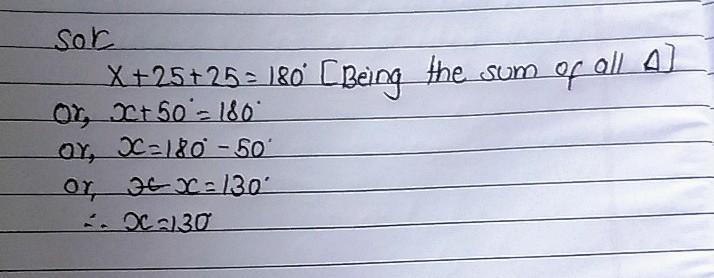 Sol
X+25+25=180° [Being the sum of all Δ]
or, x+50°=180°
or, x=180°-50°
or, x=130°
∴ x=130